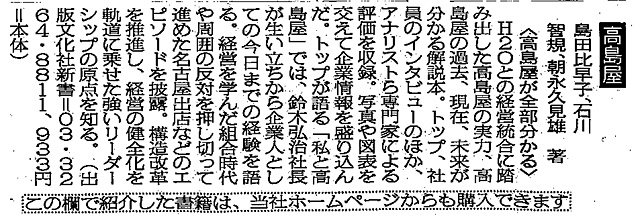 高島屋
島田比早子、石川
智規、朝永久見雄 著
〈高島屋が全部分かる〉
H2Oとの経営統合に踏
み出した高島屋の実力、高
島屋の過去、現在、未来が
分かる解説本。トップ、社
員のインタビューのほか、
アナリストら専門家による
評価を収録。写真や図表を
交えて企業情報を盛り込ん
だ。トップが語る「私と高
島屋」では、鈴木弘治社長
が生い立ちから企業人とし
ての今日までの経験を語
る。経営を学んだ組合時代
や周囲の反対を押し切って
進めた名古屋出店などのエ
ピソードを披露。構造改革
を推進し、経営の健全化を
軌道に乗せた強いリーダー
シップの原点を知る。（出
版文化社新書＝03・32
64・8811、933円
＝本体）
この欄で紹介した書籍は、当社ホームページからも購入できます